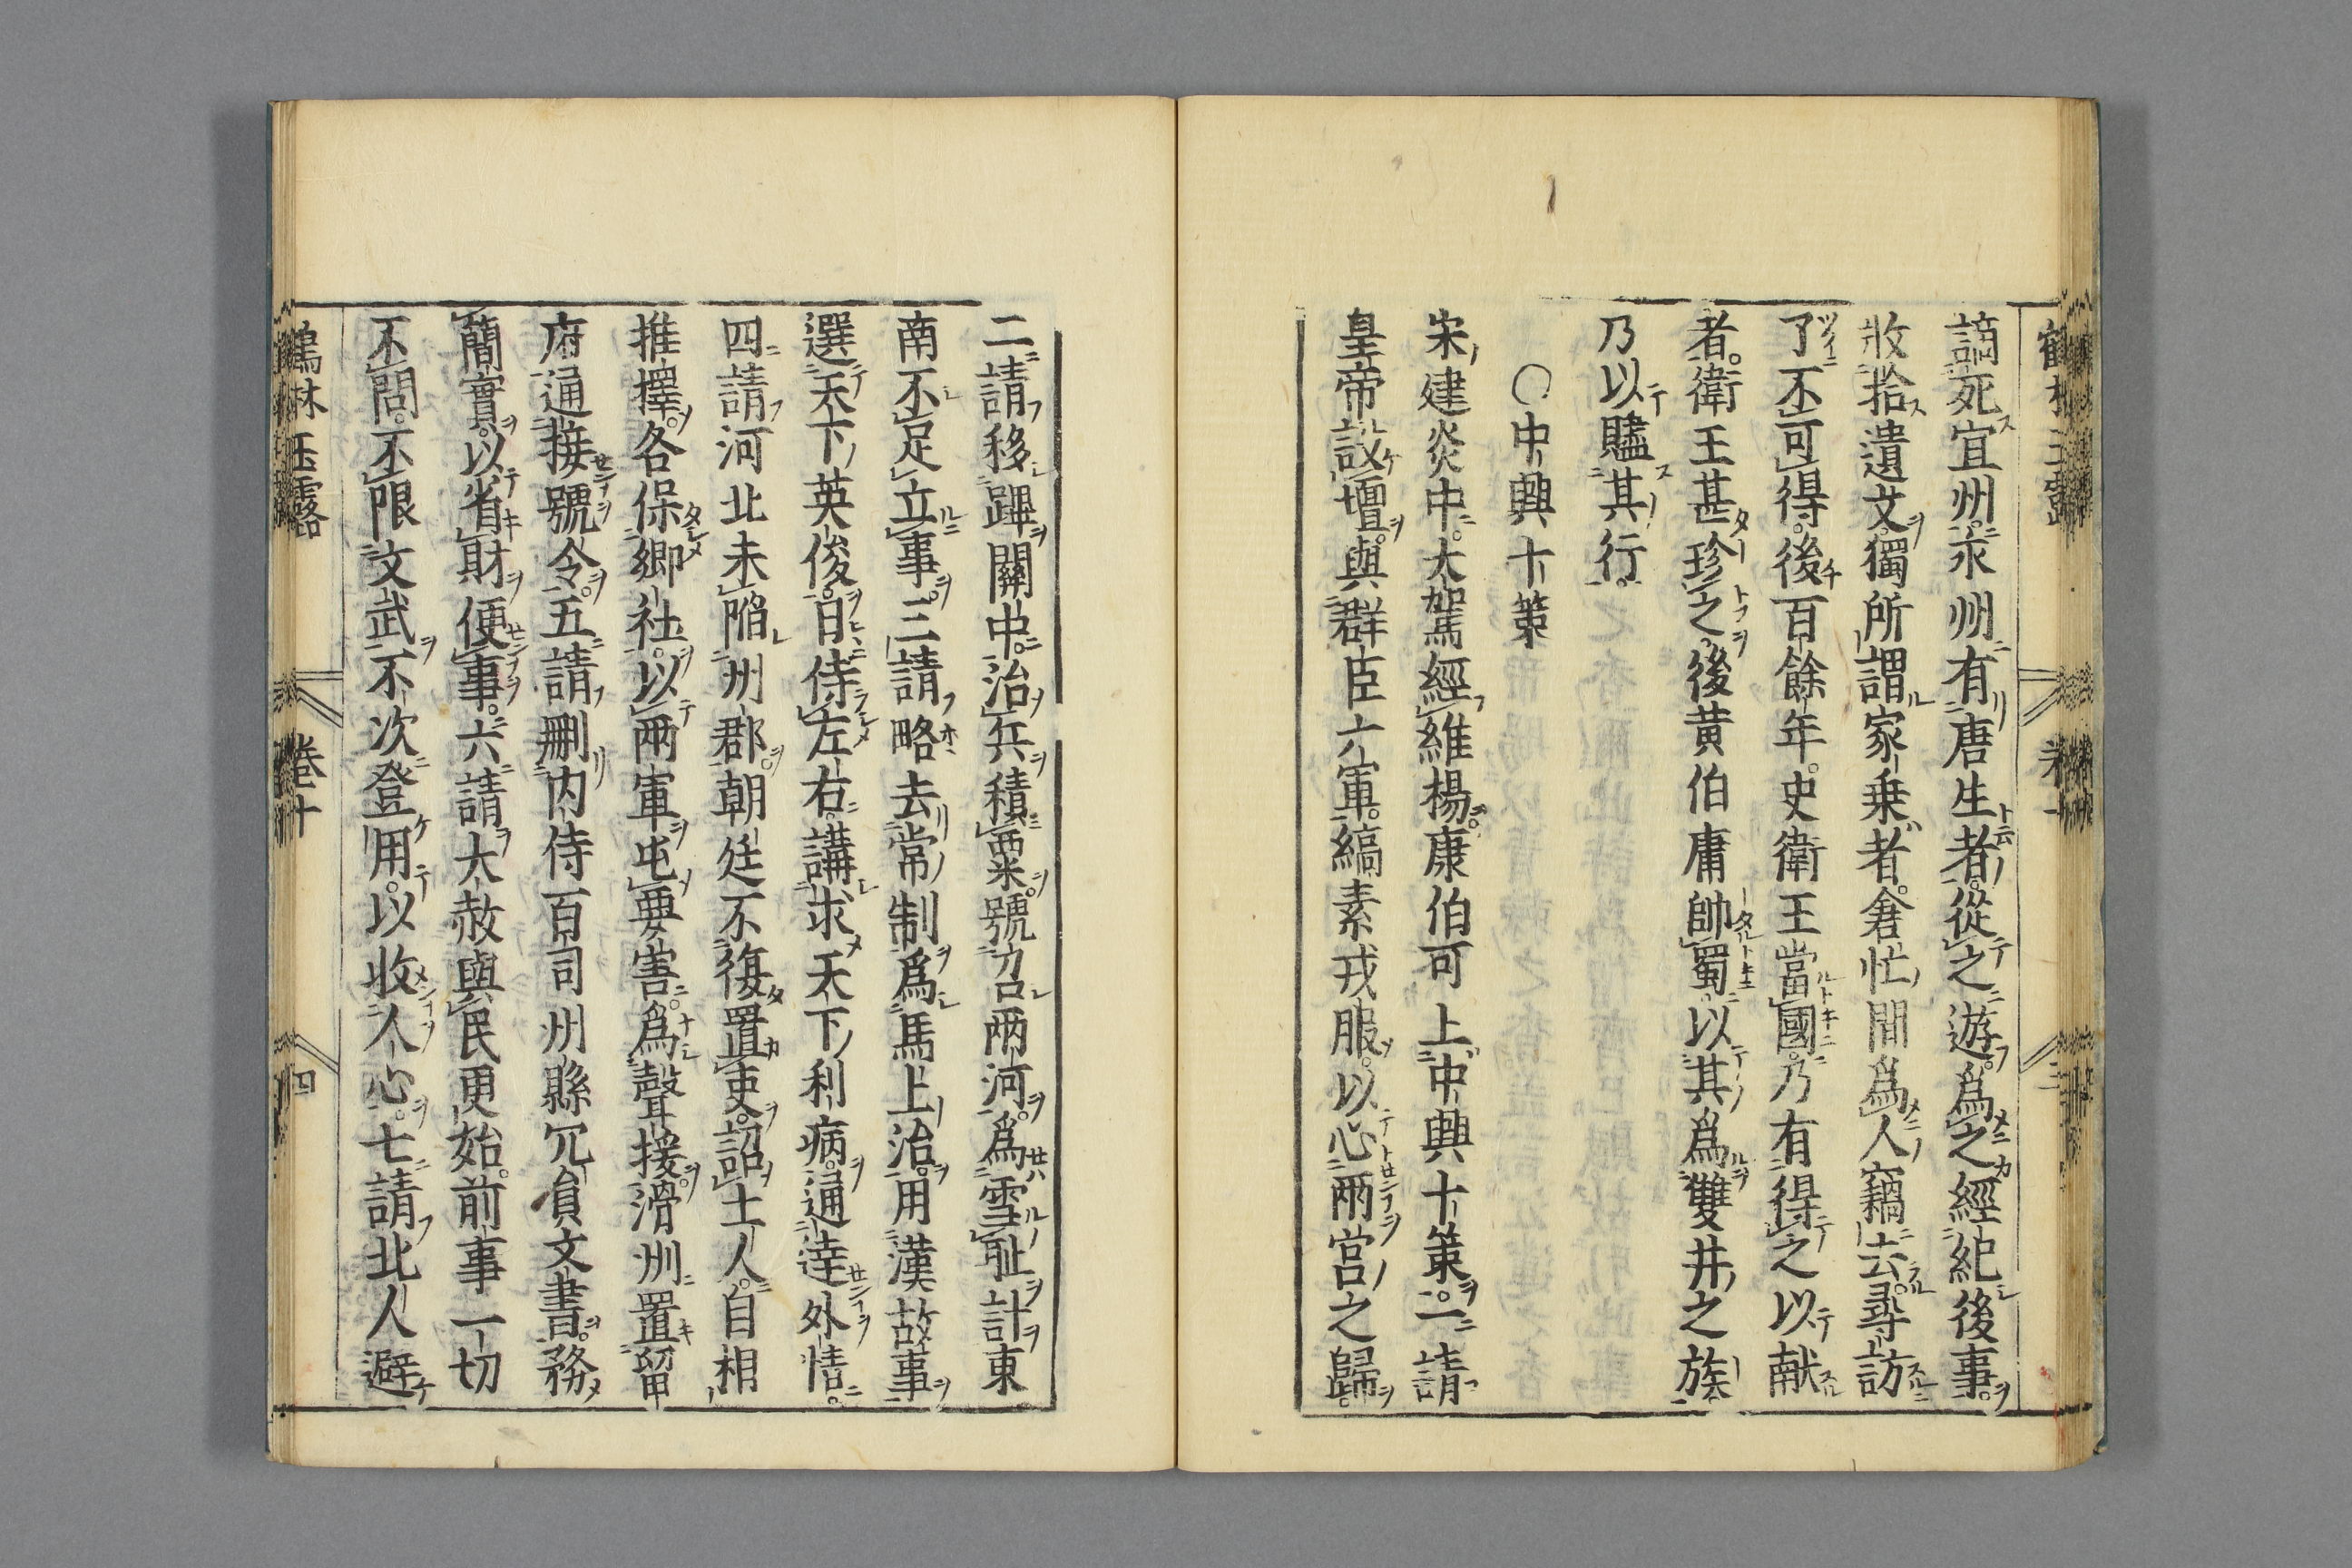 謫死宜州。永州有唐生者。從之遊。爲之經紀後事。
收拾遺文。獨所謂家乗者。倉忙間爲人竊去。尋訪
了不可得。後百餘年。史衛王當國。乃有得之以献
者。衛王甚珍之。後黄伯庸帥蜀。以其爲雙井之族
乃以贐其行。
〇中興十策
宋建炎中。大駕經維楊。康伯可上中興十策。一請
皇帝設壇。與群臣六軍。縞素戎服。以必兩宮之歸。
二請移蹕關中。治兵積粟。號召兩河。爲雪耻計。東
南不足立事。三請略去常制。爲馬上治。用漢故事
選天下英俊。日侍左右。講求天下利病。通達外情。
四請河北未陥州郡。朝廷不復置吏。詔土人。自相
推擇。各保鄉社。以兩軍屯要害。爲聲援。滑州置留
府通接號令。五請刪内侍百司州縣冗負文書。務
簡實。以省財便事。六請大赦與民更始。前事一切
不問。不限文武。不次登用。以收人心。七請北人避
鶴林玉露 卷十 四